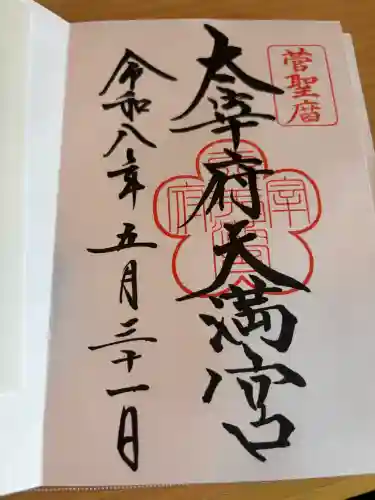 菅聖暦
太宰府天満宮
令和八年五月三十一日